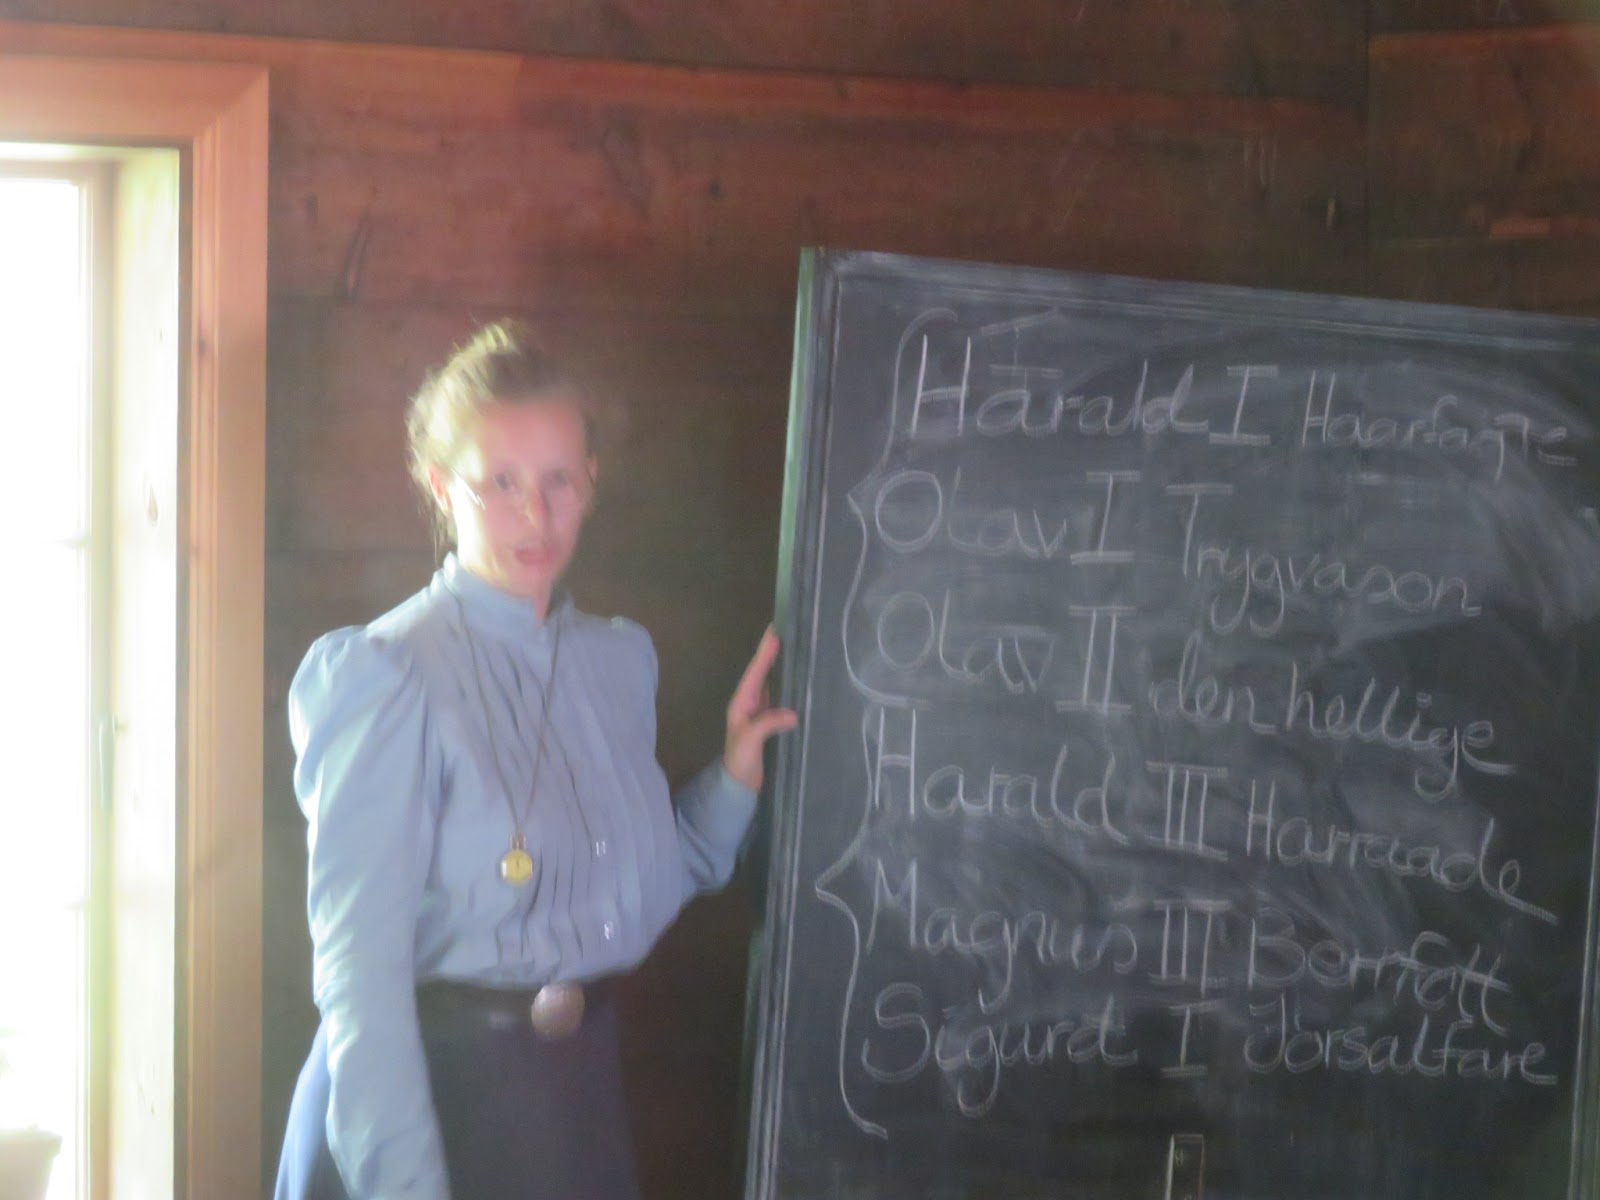 Harald I Haarfagre
Olav I Trygvason
Olav II den hellige
Harald III Harraade
Magnus III Berrfott
Sigurd I Jorsalfare